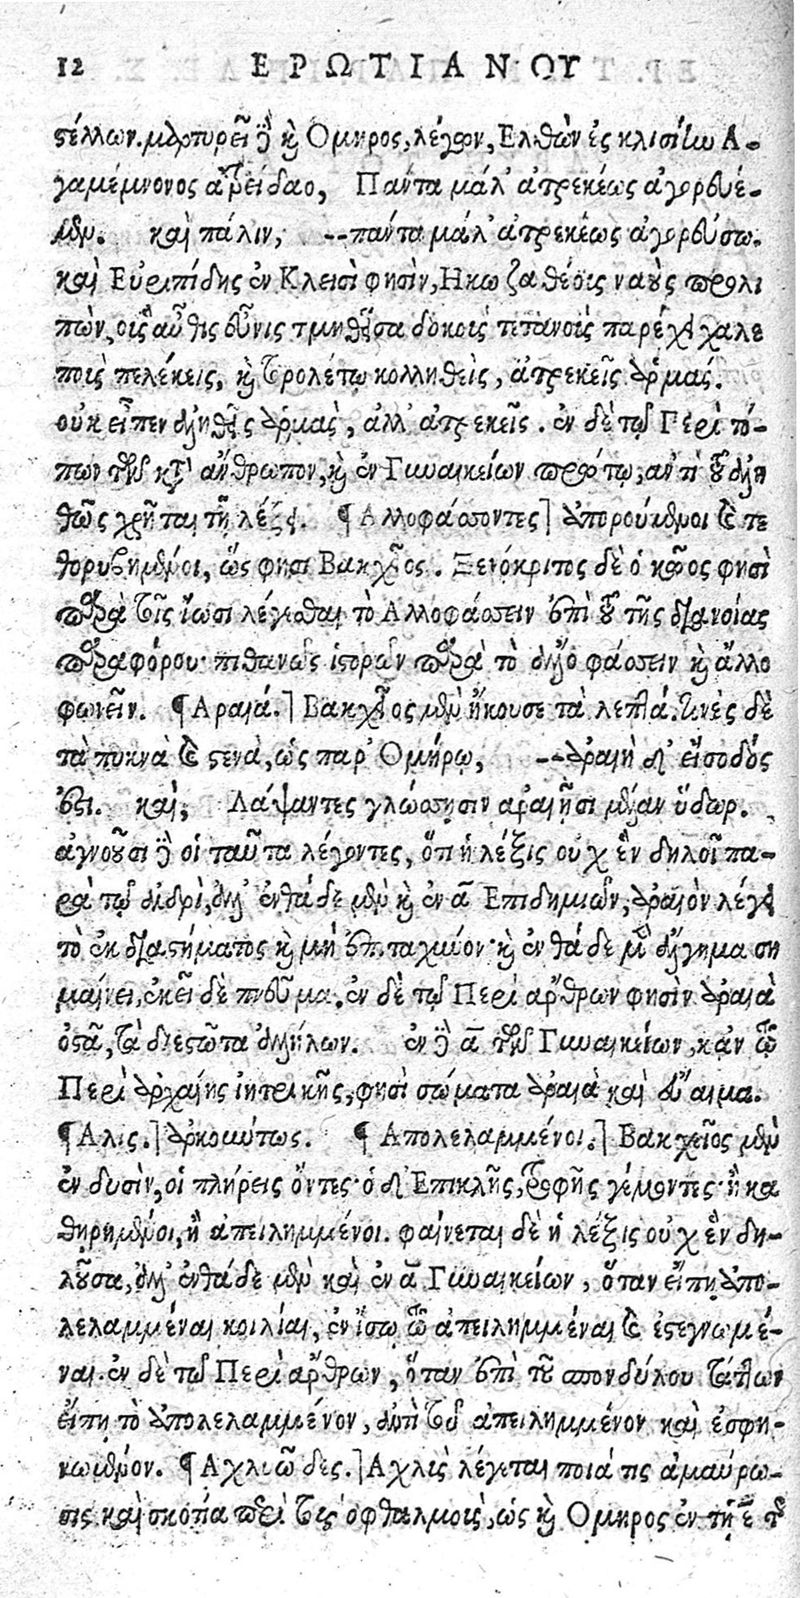 12 ΕΡΩΤΙΑΝΟΥ
στέλλων. μαρτυρεῖ γὸ κỳ Ομηρος, λέγων, Ελθὼν ἐς κλισίην Α-
γαμέμνονος ἀτρείδαο, Πάντα μάλ' ἀτρεκέως ἀγορευέ-
μεν. καὶ πάλιν, --πάντα μάλ' ἀτρεκέως ἀγορεύσω.
καὶ Εὐριπίδης ἐν Κρησὶ φησὶν, Ηκω ζαθέοις ναοὺς προλι
πὼν, οἷς αὖθις τμηθεῖσα δοκοὺς παρέχει χαλε
ποῖς πελέκεις, καὶ κολληθεὶς, ἀτρεκεῖς ἁρμάς.
οὐκ εἶπεν ἀληθεῖς ἁρμὰς, ἀλλ' ἀτρεκεῖς. ἐν δὲ τῷ Περὶ τό-
πων τῶν κατ' ἄνθρωπον, καὶ ἐν Γυναικείων πρώτῳ, ἀντὶ τοῦ ἀλη
θῶς χρῆται τῇ λέξει. ¶ Αλλοφάσσοντες] ἀπορούμενοι καὶ τε
θορυβημένοι, ὥς φησι Βακχεῖος. Ξενόκριτος δὲ ὁ κῷος φησὶ
παρὰ τοῖς ἴωσι λέγεσθαι τὸ Αλλοφάσσειν ἐπὶ τοῦ τῆς διανοίας
παραφόρου· πιθανῶς ἱστορῶν παρὰ τὸ ἄλλο φάσσειν καὶ ἄλλο
φωνεῖν. ¶ Αραιά.] Βακχεῖος μὲν ἤκουσε τὰ λεπτά. τινὲς δὲ
τὰ πυκνὰ καὶ στενὰ, ὡς παρ' Ομήρῳ, --ἀραιὴ δ' εἴσοδός
ἐστι. καὶ, Λάψαντες γλώσσῃσιν ἀραιῇσι μέλαν ὕδωρ.
ἀγνοοῦσι γὰρ οἱ ταῦτα λέγοντες, ὅτι ἡ λέξις οὐχ ἓν δηλοῖ πα-
ρὰ τῷ ἀνδρὶ, ἀλλ' ἐνθάδε μὲν καὶ ἐν α Επιδημιῶν, ἀραιὸν λέγει
τὸ ἐκ διαστήματος καὶ μὴ ἐπιταχύνον· καὶ ἐνθάδε μὲν διήγημα ση
μαίνει, ἐκεῖ δὲ πνεῦμα. ἐν δὲ τῷ Περὶ ἄρθρων φησὶν ἀραιὰ
ὀστᾶ, τὰ διεστῶτα ἀλλήλων. ἐν δὲ α τῶν Γυναικείων, κἀν τῷ
Περὶ ἀρχαίης ἰητρικῆς, φησὶ σώματα ἀραιὰ καὶ ἄναιμα.
¶ Αλις.] ἀρκούντως. ¶ Απολελαμμένοι.] Βακχεῖος μὲν
ἐν δυσὶν, οἱ πλήρεις ὄντες· ὁ δ' Επικλῆς, τροφῆς γέμοντες· ἢ κα
θῃρημένοι, ἢ ἀπειλημμένοι. φαίνεται δὲ ἡ λέξις οὐχ ἓν δη-
λοῦσα, ἀλλ' ἐνθάδε μὲν καὶ ἐν α Γυναικείων, ὅταν εἴπῃ ἀπο-
λελαμμέναι κοιλίαι, ἐν ἴσῳ τῷ ἀπειλημμέναι καὶ ἐστεγνωμέ-
ναι. ἐν δὲ τῷ Περὶ ἄρθρων, ὅταν ἐπὶ τοῦ σπονδύλου τάττων
εἴπῃ τὸ ἀπολελαμμένον, ἀντὶ τοῦ ἀπειλημμένον καὶ ἐσφη-
νωμένον. ¶ Αχλυώδες.] Αχλὺς λέγεται ποιά τις ἀμαύρω-
σις καὶ σκοτία περὶ τοῖς ὀφθαλμοῖς, ὡς καὶ Ομηρος ἐν τῇ ε τῆς